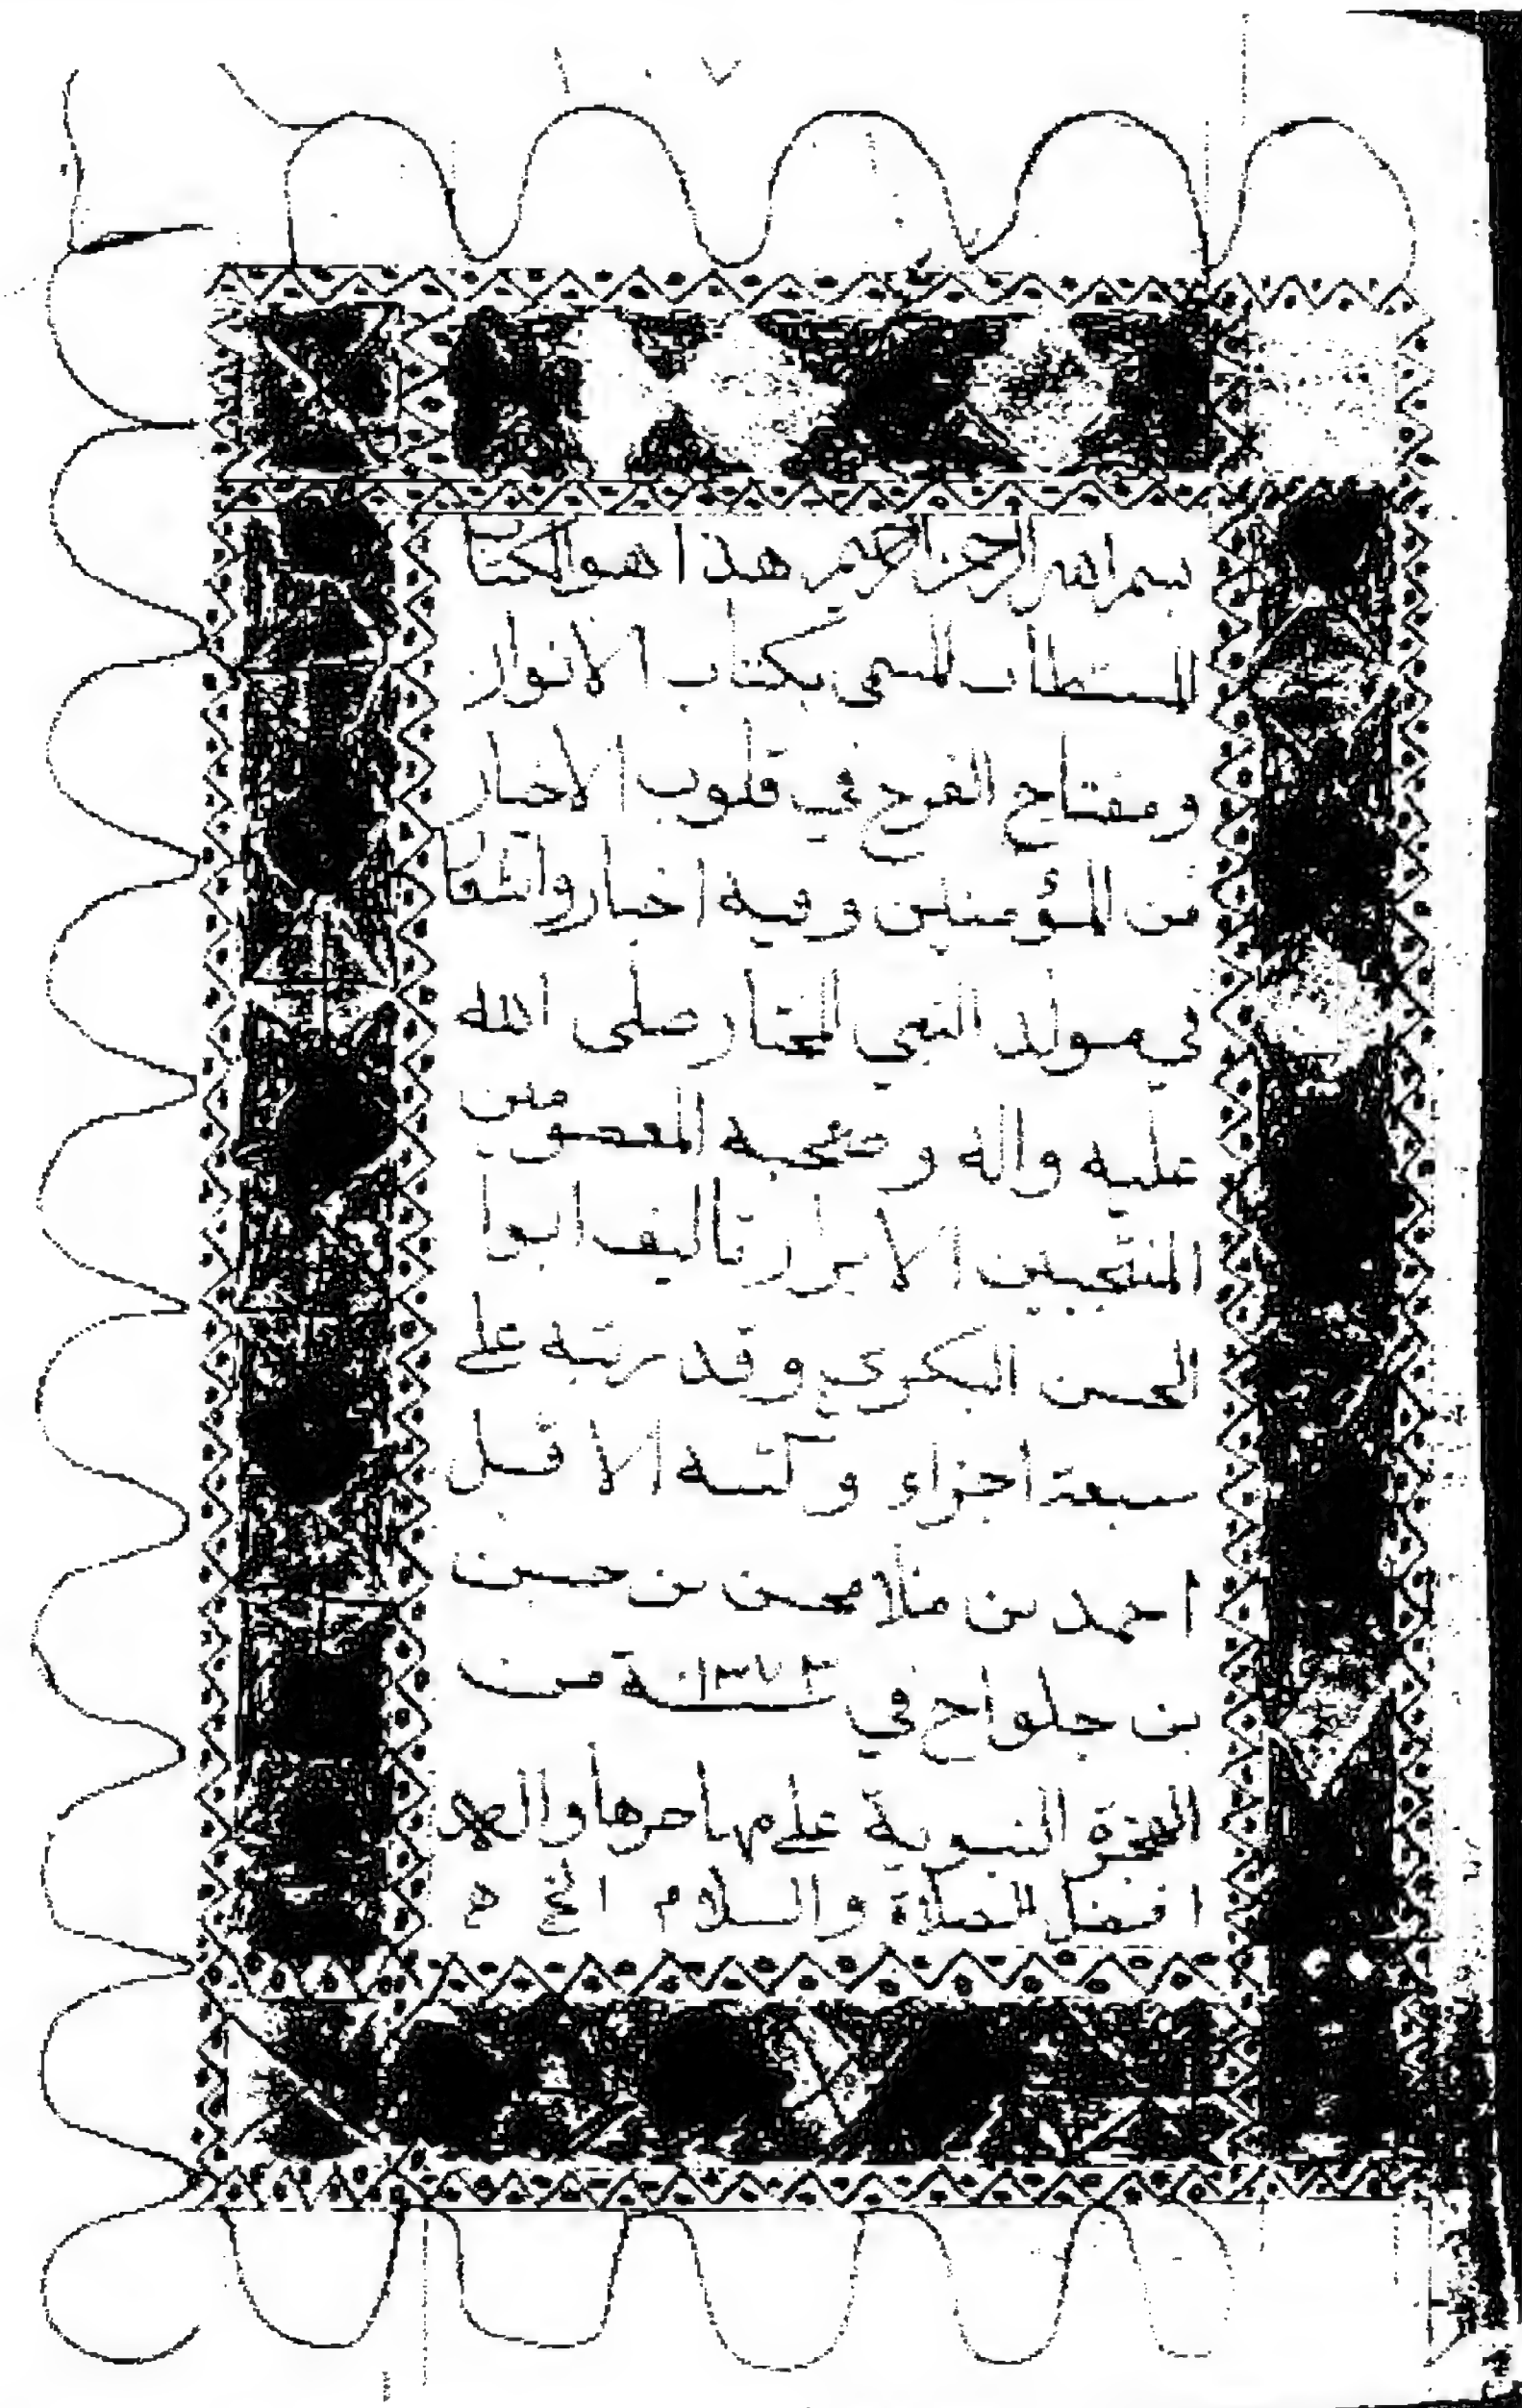 بسم الله الرحمن الرحيم هذا هو الكتاب
المستطاب المسمى بكتاب الانوار
ومفتاح الفرح في قلوب الاخيار
من المؤمنين وفيه اخبار
في مولد النبي المختار صلى الله
عليه واله وصحبه المعصومين
المنتجبين الابرار تأليف ابوا
الحسن البكري وقد مرتبه على
سبعة اجزاو وكتبه الاقل
احمد بن ملا محسن بن حسين
بن جلواح في سنة ١٣٧٣ من
الهجرة النبوية على مهاجرها واله
افضل الصلاة والسلام الخ م